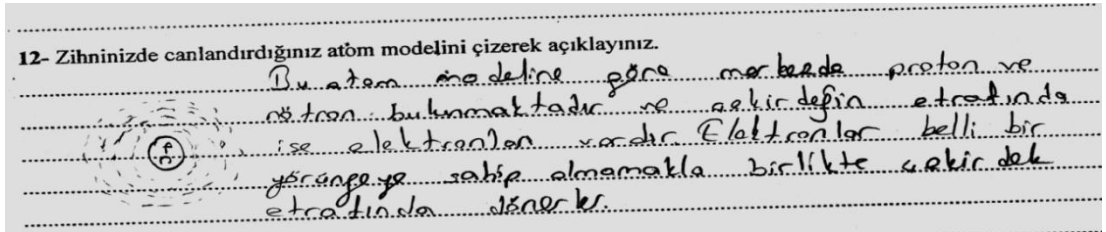 12- Zihninizde canlandırdığınız atom modelini çizerek açıklayınız.
Bu atom modeline göre merkezde proton ve
nötron bulunmaktadır ve çekirdeğin etrafında
ise elektronlar vardır. Elektronlar belli bir
yörüngeye sahip olmamakla birlikte çekirdek
etrafında dönerler.